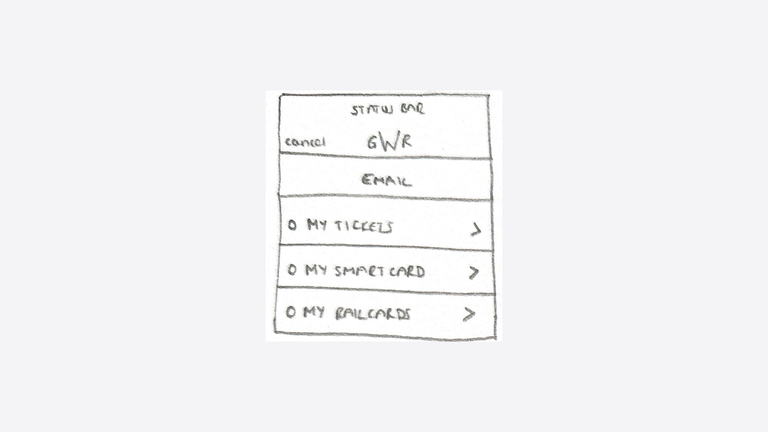 STATUS BAR
cancel GWR
EMAIL
O MY TICKETS >
O MY SMARTCARD >
O MY RAILCARDS >